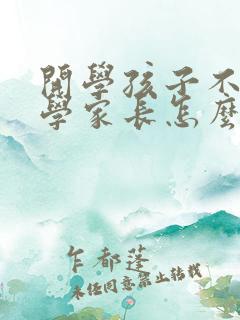 開學孩子不
學家长怎麼
乍都蓬
未经同意禁止转载